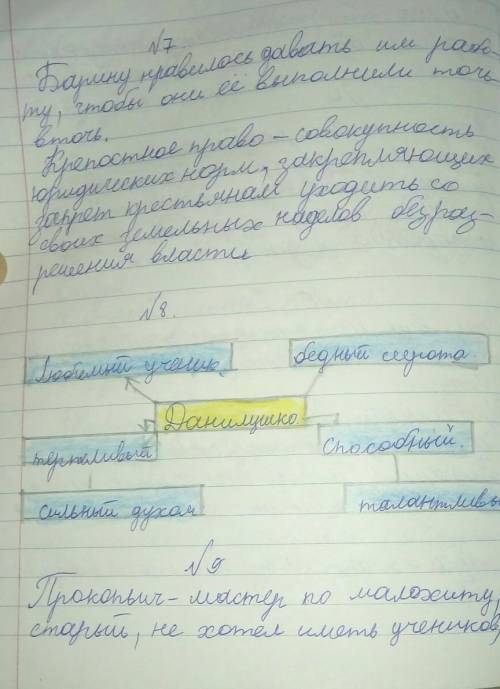 №7
Барину нравилось давать им рабо-
ту, чтобы они её выполнили точь
в точь.
Крепостное право – совокупность
юридических норм, закрепляющих
запрет крестьянам уходить со
своих земельных наделов без раз-
решения власти
№8.
Любимый ученик.
бедный сирота
Данилушко
терпеливый
способный.
сильный духом
талантливы
№9
Прокопьич – мастер по малохиту,
старый, не хотел иметь учеников,